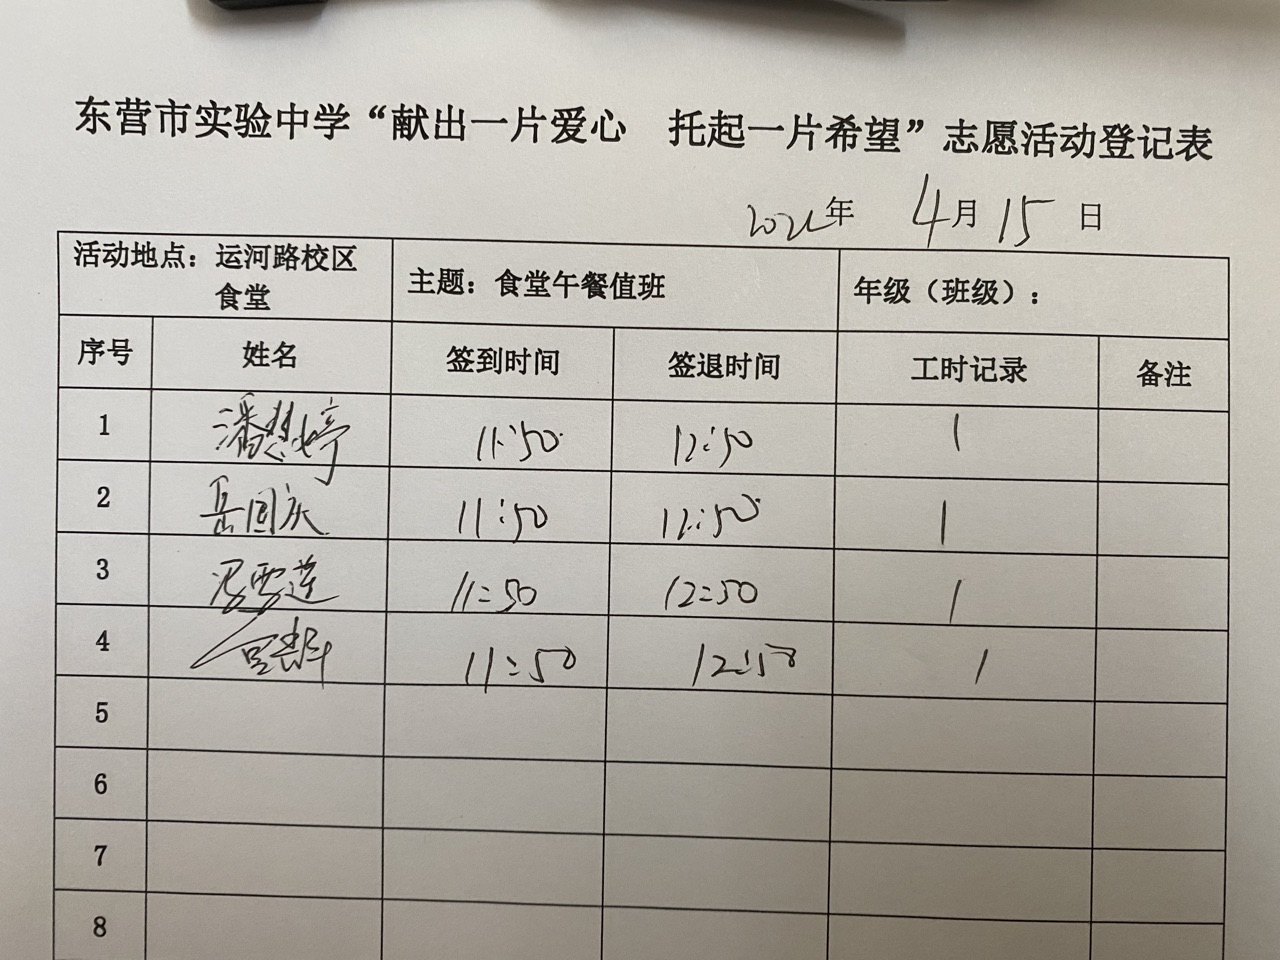 东营市实验中学“献出一片爱心 托起一片希望”志愿活动登记表
年 4月15日
活动地点：运河路校区食堂 主题：食堂午餐值班 年级（班级）：
序号 姓名 签到时间 签退时间 工时记录 备注
1 潘慧婷 11:50 12:50 1
2 岳国庆 11:50 12:50 1
3 雪莲 11:50 12:50 1
4 11:50 12:50 1
5
6
7
8